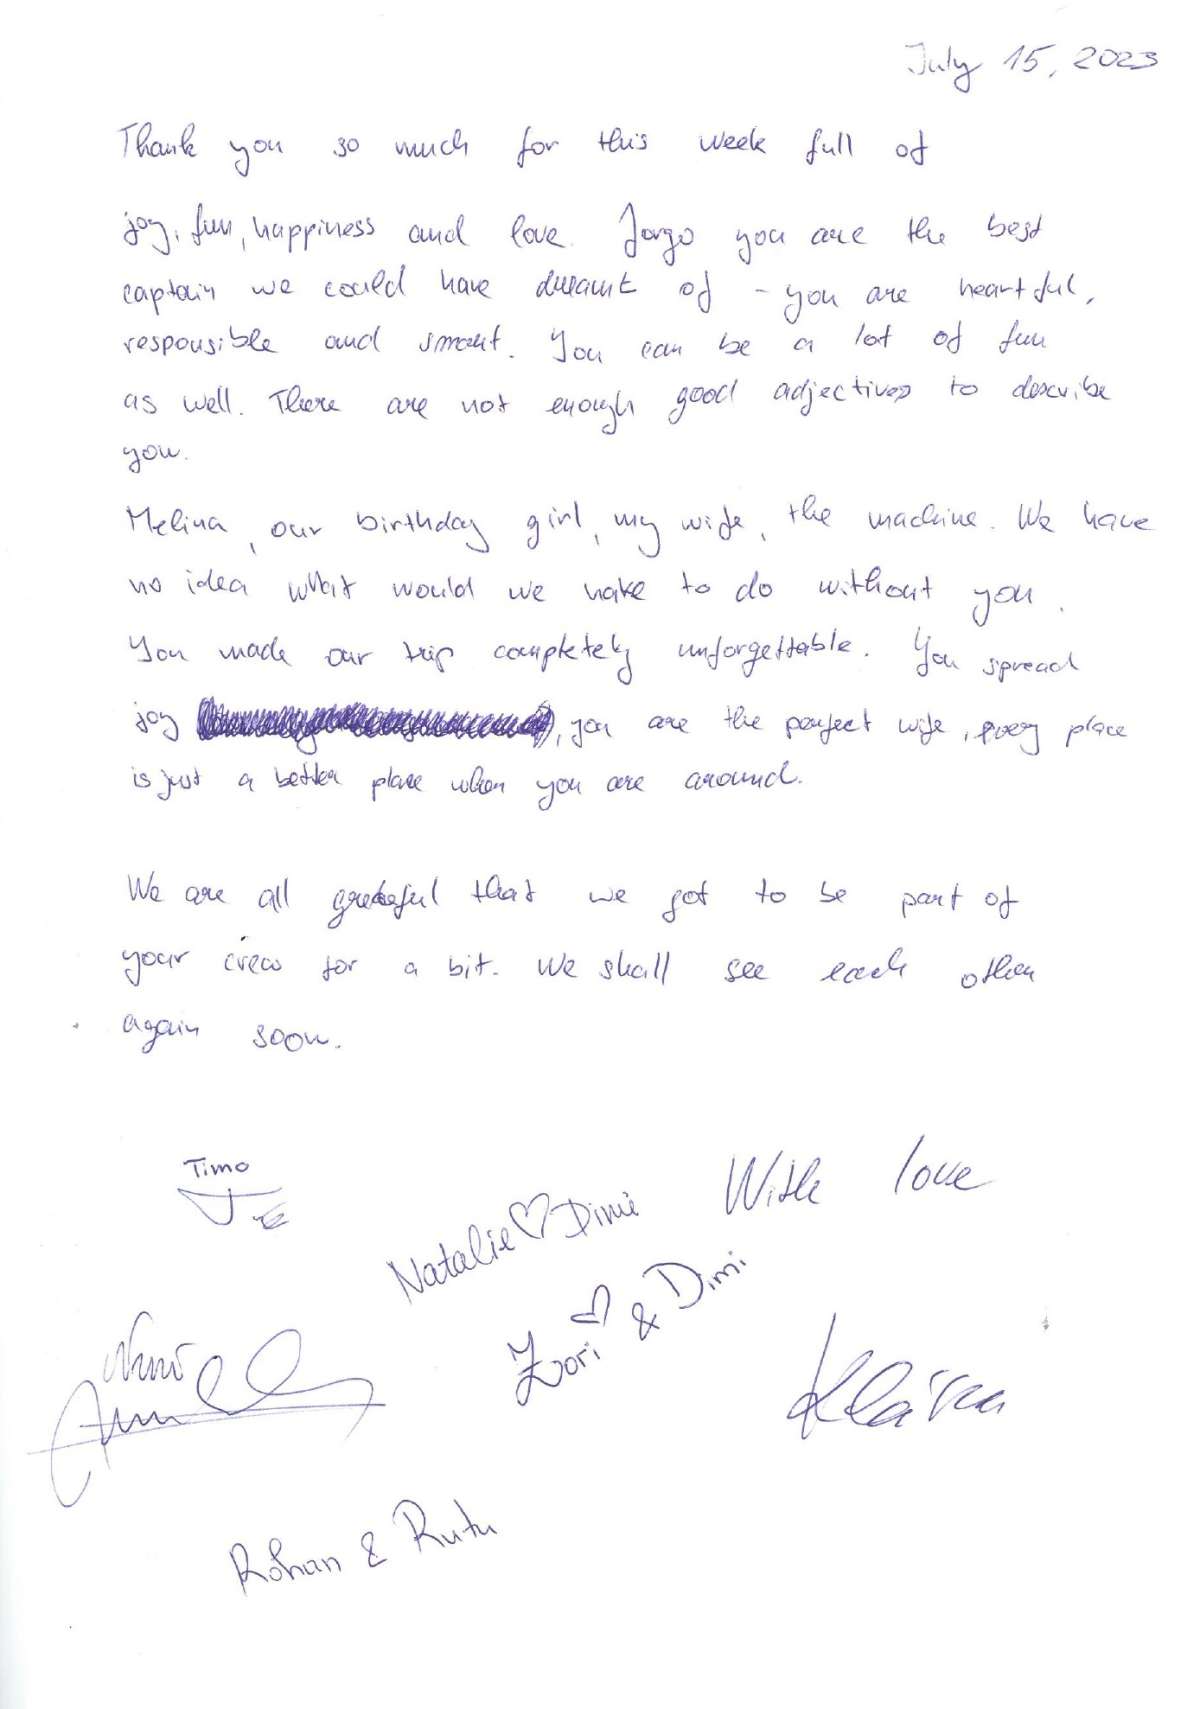 July 15, 2023
Thank you so much for this week full of
joy, fun, happiness and love. Jorgo you are the best
captain we could have dreamt of - you are heartful,
responsible and smart. You can be a lot of fun
as well. There are not enough good adjectives to describe
you.
Melina, our birthday girl, my wife, the machine. We have
no idea what would we have to do without you.
You made our trip completely unforgettable. You spread
joy, you are the perfect wife, every place
is just a better place when you are around.
We are all grateful that we got to be part of
your crew for a bit. We shall see each other
again soon.
Timo
With love
Natalie ♡ Dimi
Zori & Dimi
Klára
Rohan & Rutu